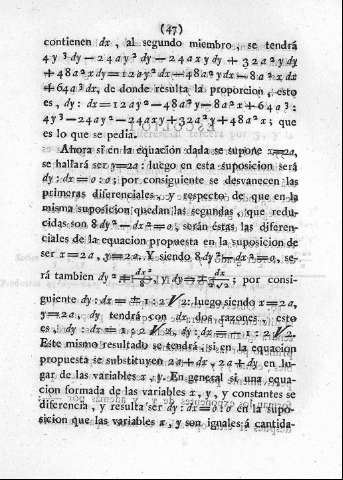 (47)
contienen dx, al segundo miembro, se tendrá
4y³dy—24ay²dy—24axydy+32a²ydy
+48a²xdy=12ay²dx—48a²ydx—8a²xdx
+64a³dx, de donde resulta la proporcion, esto
es, dy: dx=12ay²—48a²y—8a²x+64a³:
4y³—24ay²—24axy+32a²y+48a²x; que
es lo que se pedia.
Ahora si en la equacion dada se supone x=2a,
se hallará ser y=2a: luego en esta suposicion será
dy: dx=0:0; por consiguiente se desvanecen las
primeras diferenciales, y respecto de que en la
misma suposicion quedan las segundas, que redu-
cidas son 8dy²—dx²=0, serán éstas las diferen-
ciales de la equacion propuesta en la suposicion de
ser x=2a, y=2a. Y siendo 8dy²—dx²=0, se-
rá tambien dy²=dx²/8, y dy=±dx/2√2; por consi-
guiente dy: dx=±1:2√2: luego siendo x=2a,
y=2a, dy tendrá con dx dos razones, esto
es, dy: dx=1:2√2, dy: dx=—1:2√2.
Este mismo resultado se tendrá, si en la equacion
propuesta se substituyen 2a+dx, 2a+dy en lu-
gar de las variables x, y. En general si una equa-
cion formada de las variables x, y, y constantes se
diferencia, y resulta ser dy: dx=0:0 en la supo-
sicion que las variables x, y son iguales á cantida-